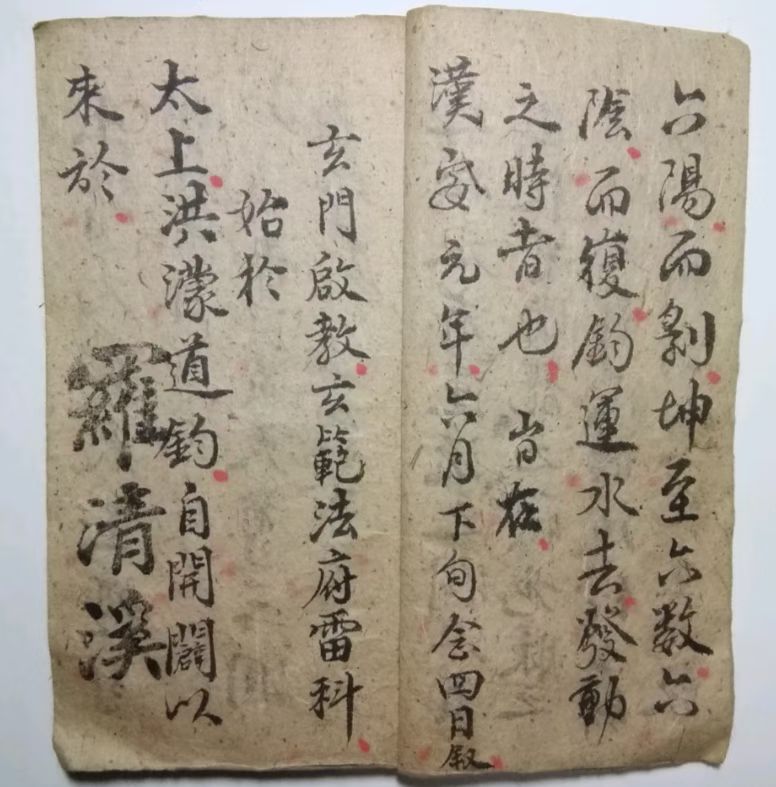 六陽而剝坤至六数六
陰而復鈞運水去發動
之時者也 旹在
漢安元年六月下旬念四日叙
玄門啟教玄範法府雷科
始於
太上洪濛道鈞自開闢以
來於
羅清溪